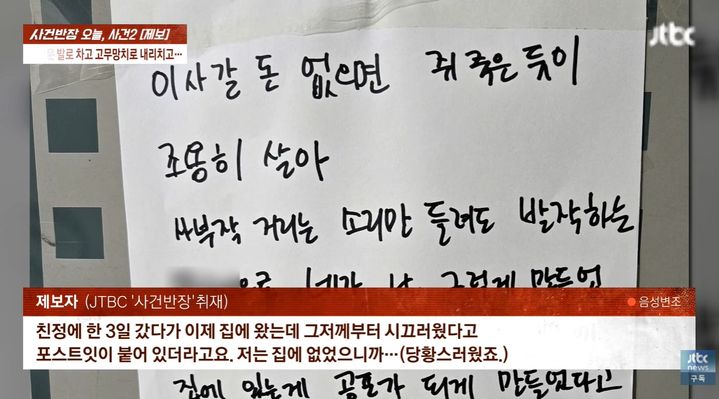 사건반장 오늘, 사건2 [제보]
발로 차고 고무망치로 내리치고…
jtbc
이사갈 돈 없으면 쥐 죽은 듯이
조용히 살아
사부작 거리는 소리만 들려도 발작하는
으로 네가 날 그렇게 만들었
제보자 (JTBC '사건반장' 취재)
음성변조
친정에 한 3일 갔다가 이제 집에 왔는데 그저께부터 시끄러웠다고
포스트잇이 붙어 있더라고요. 저는 집에 없었으니까…(당황스러웠죠.)
jtbc
구독
집에 있는게 공포가 되게 만들었다고